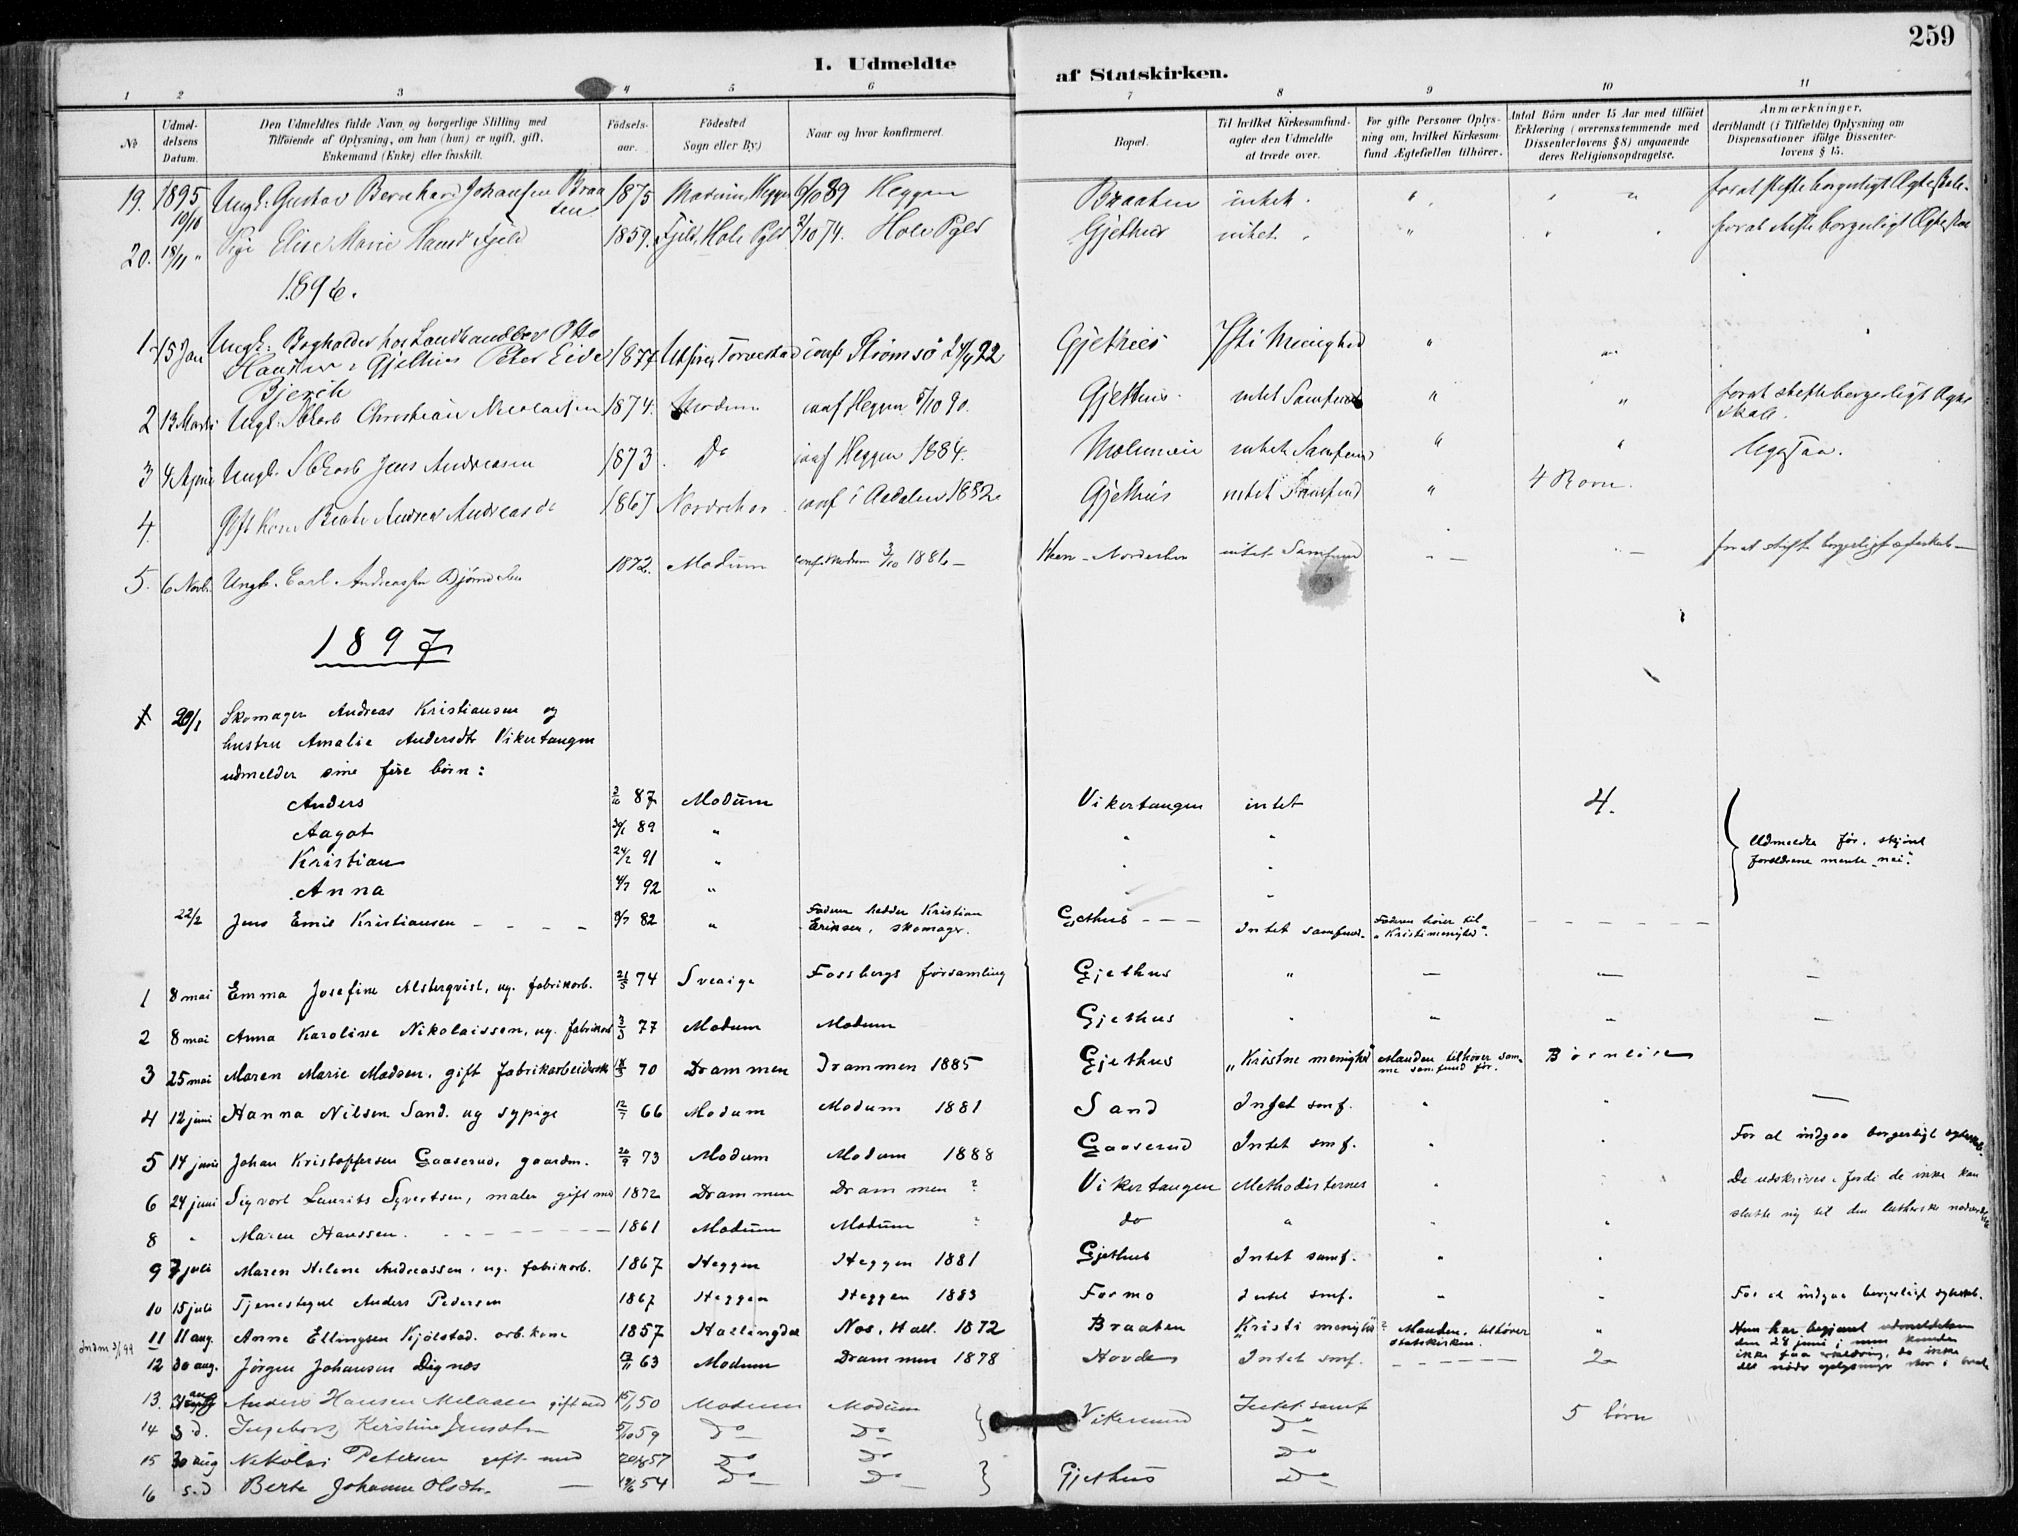 259
I. Udmeldte af Statskirken.
1 2 3 4 5 6 7 8 9 10 11
No
Udmel-
delsens
Datum.
Den Udmeldtes fulde Navn og borgerlige Stilling med
Tilføiende af Oplysning, om han (hun) er ugift, gift,
Enkemand (Enke) eller fraskilt.
Fødsels-
aar.
Fødested
Sogn eller By.)
Naar og hvor konfirmeret.
Bopæl.
Til hvilket Kirkesamfund-
agter den Udmeldte
at træde over.
For gifte Personer Oplys-
ning om, hvilket Kirkesam-
fund Ægtefællen tilhører.
Antal Børn under 15 Aar med tilføiet
Erklæring (overensstemmende med
Dissenterlovens § 8) angaaende
deres Religionsopdragelse.
Anmærkninger,
deriblandt (i Tilfælde) Oplysning om
Dispensationer ifølge Dissenter-
lovens § 15.
19. 1895 10/10 Ungk. Gustav Bernhard Johansen Braaten 1875 Modum, Heggen 6/10 89 Heggen Braaten intet " " " for at stifte borgerligt Ægteskab
20. 18/11 " Pige Elise Marie Hansd Fjeld 1859. Fjeld, Hole Pgld /10 74. Hole Pgld Gjethus intet " for at stifte borgerligt Ægteska
1896.
1 15 Jan Ungk: Bogholder hos Landhandler Otto
Gjethus Peter Eide 1874 Torvestad conf Strømsø 92 Gjethus Menighed " "
Bjerch
2 13 Marts Ungk: Christian Nicolaisen 1874. Modum conf Heggen 5/10 90. Gjethus intet Samfund " " for at stifte borgerligt Ægte
skab.
3 4 April Ungk. Jens Andreasen 1873. Do conf Heggen 1884. intet Samfund " "
4. Gift Kone Beate Andrea Andreasd. 1867 Norderhov conf i Aadalen 1882. Gjethus intet Samfund " 4 Børn.
5. 6 Novb. Ungk. Carl Andreassen 1872. Modum conf. Modum 3/10 1886 Heen - Norderhov intet Samfund - - for at stifte borgerligt ægteskab -
1897
1 29/1 Skomager Andreas Kristiansen og
hustru Amalie Andersdtr Vikertangen
udmelder sine fire børn:
Anders 87 Modum Vikertangen intet 4.
Aagot 89 " " "
Kristian 24/2 91 " " "
Anna 4/7 92 " " "
Udmeldte før, skjønt
forældrene mente "nei".
22/2 Jens Emil Kristiansen - - - - 8/7 82 " Faderen hedder Kristian
Eriksen, skomager. Gjethus - - - Intet samfund. Faderen hører til
"Kristi menighed". - - - - -
1 8 mai Emma Josefine Alsterqvist, ug. fabrikarb. 21/3 74 Sverige Fossbergs forsamling Gjethus " - - -
2 8 mai Anna Karoline Nikolaissen, ug. fabrikarb 3/3 77 Modum Modum Gjethus " " " -
3 25 mai Maren Marie Madsen, gift fabrikarbeiderske 70 Drammen Drammen 1885 Gjethus "Kristne menighed" Manden tilhører sam-
me samfund før. Børnløse
4 12 juni Hanna Nilsen Sand. ug sypige 12/7 66 Modum Modum 1881 Sand Intet smf. " " -
5 14 juni Johan Kristoffersen Gaaserud, gaardm. 20/9 73 Modum Modum 1888 Gaaserud Intet smf. " " For at indgaa borgerligt egtesk.
6 24 juni Sigvart Laurits Syvertsen, maler gift md 1872 Drammen Drammen ? Vikertangen Methodisterne " " De udskrives, fordi de ikke kan
8 " Maren Hanssen. - - - - - 1861 Modum Modum ? do " " " slutte sig til den lutherske nadverd
9 7 juli Maren Helene Andreassen, ug. fabrikarb. 1867 Heggen Heggen 1881 Gjethus Intet samf. " "
10 15 juli Tjenestegut Anders Pedersen 1867 Heggen Heggen 1883 Formo Intet smf. " " For at indgaa borgerligt egtesk.
Indm 3/1 99 11 11 aug. Anne Ellingsen Kjølstad. arb. kone 1857 Hallingdal Nes, Hall. 1872 Braaten "Kristi menighed" ? Manden. tilhører
statskirken. " Hun har begjæret udmeldelsen
den 24 juni, men kunde
ikke faa erklæring, da ikke
det nødv. oplysninger
12 30 aug. Jørgen Johansen Dignæs 12/11 63 Modum Drammen 1878 Hovde Intet smf. - - - - - 2
13. aug Anders Hansen Melaaen gift med 15/1 50 Modum Modum Vikersund Intet samf 5 børn
14 s d. Ingeborg Kirstine Jensdtr 5/10 59 Do Do Do
15 30 aug Nikolai Petersen gift med 57 Do Do Do
16 s.d Berte Johanne Olsdtr. - 19/6 54 Do Do Gjethus Do